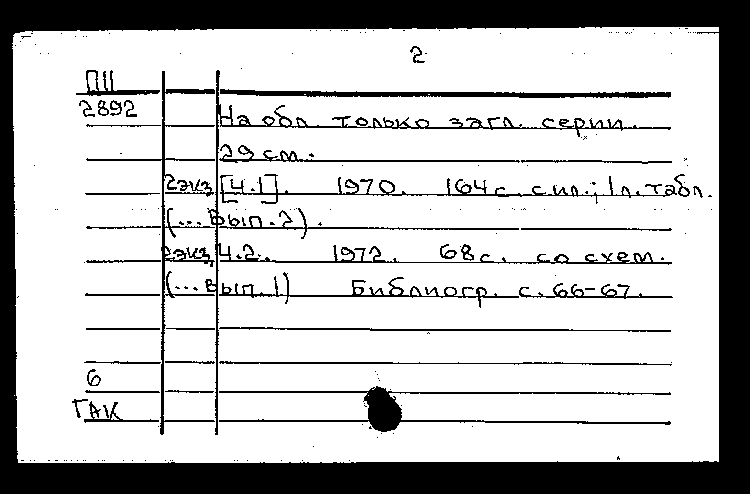 2
ПII
2892
На обл. только загл. серии.
29 см.
2экз [Ч.1]. 1970. 164 с. с ил.; 1 л. табл.
(... Вып. 2).
2экз. Ч.2. 1972. 68 с. со схем.
(... Вып. 1) Библиогр. с. 66-67.
6
ГАК